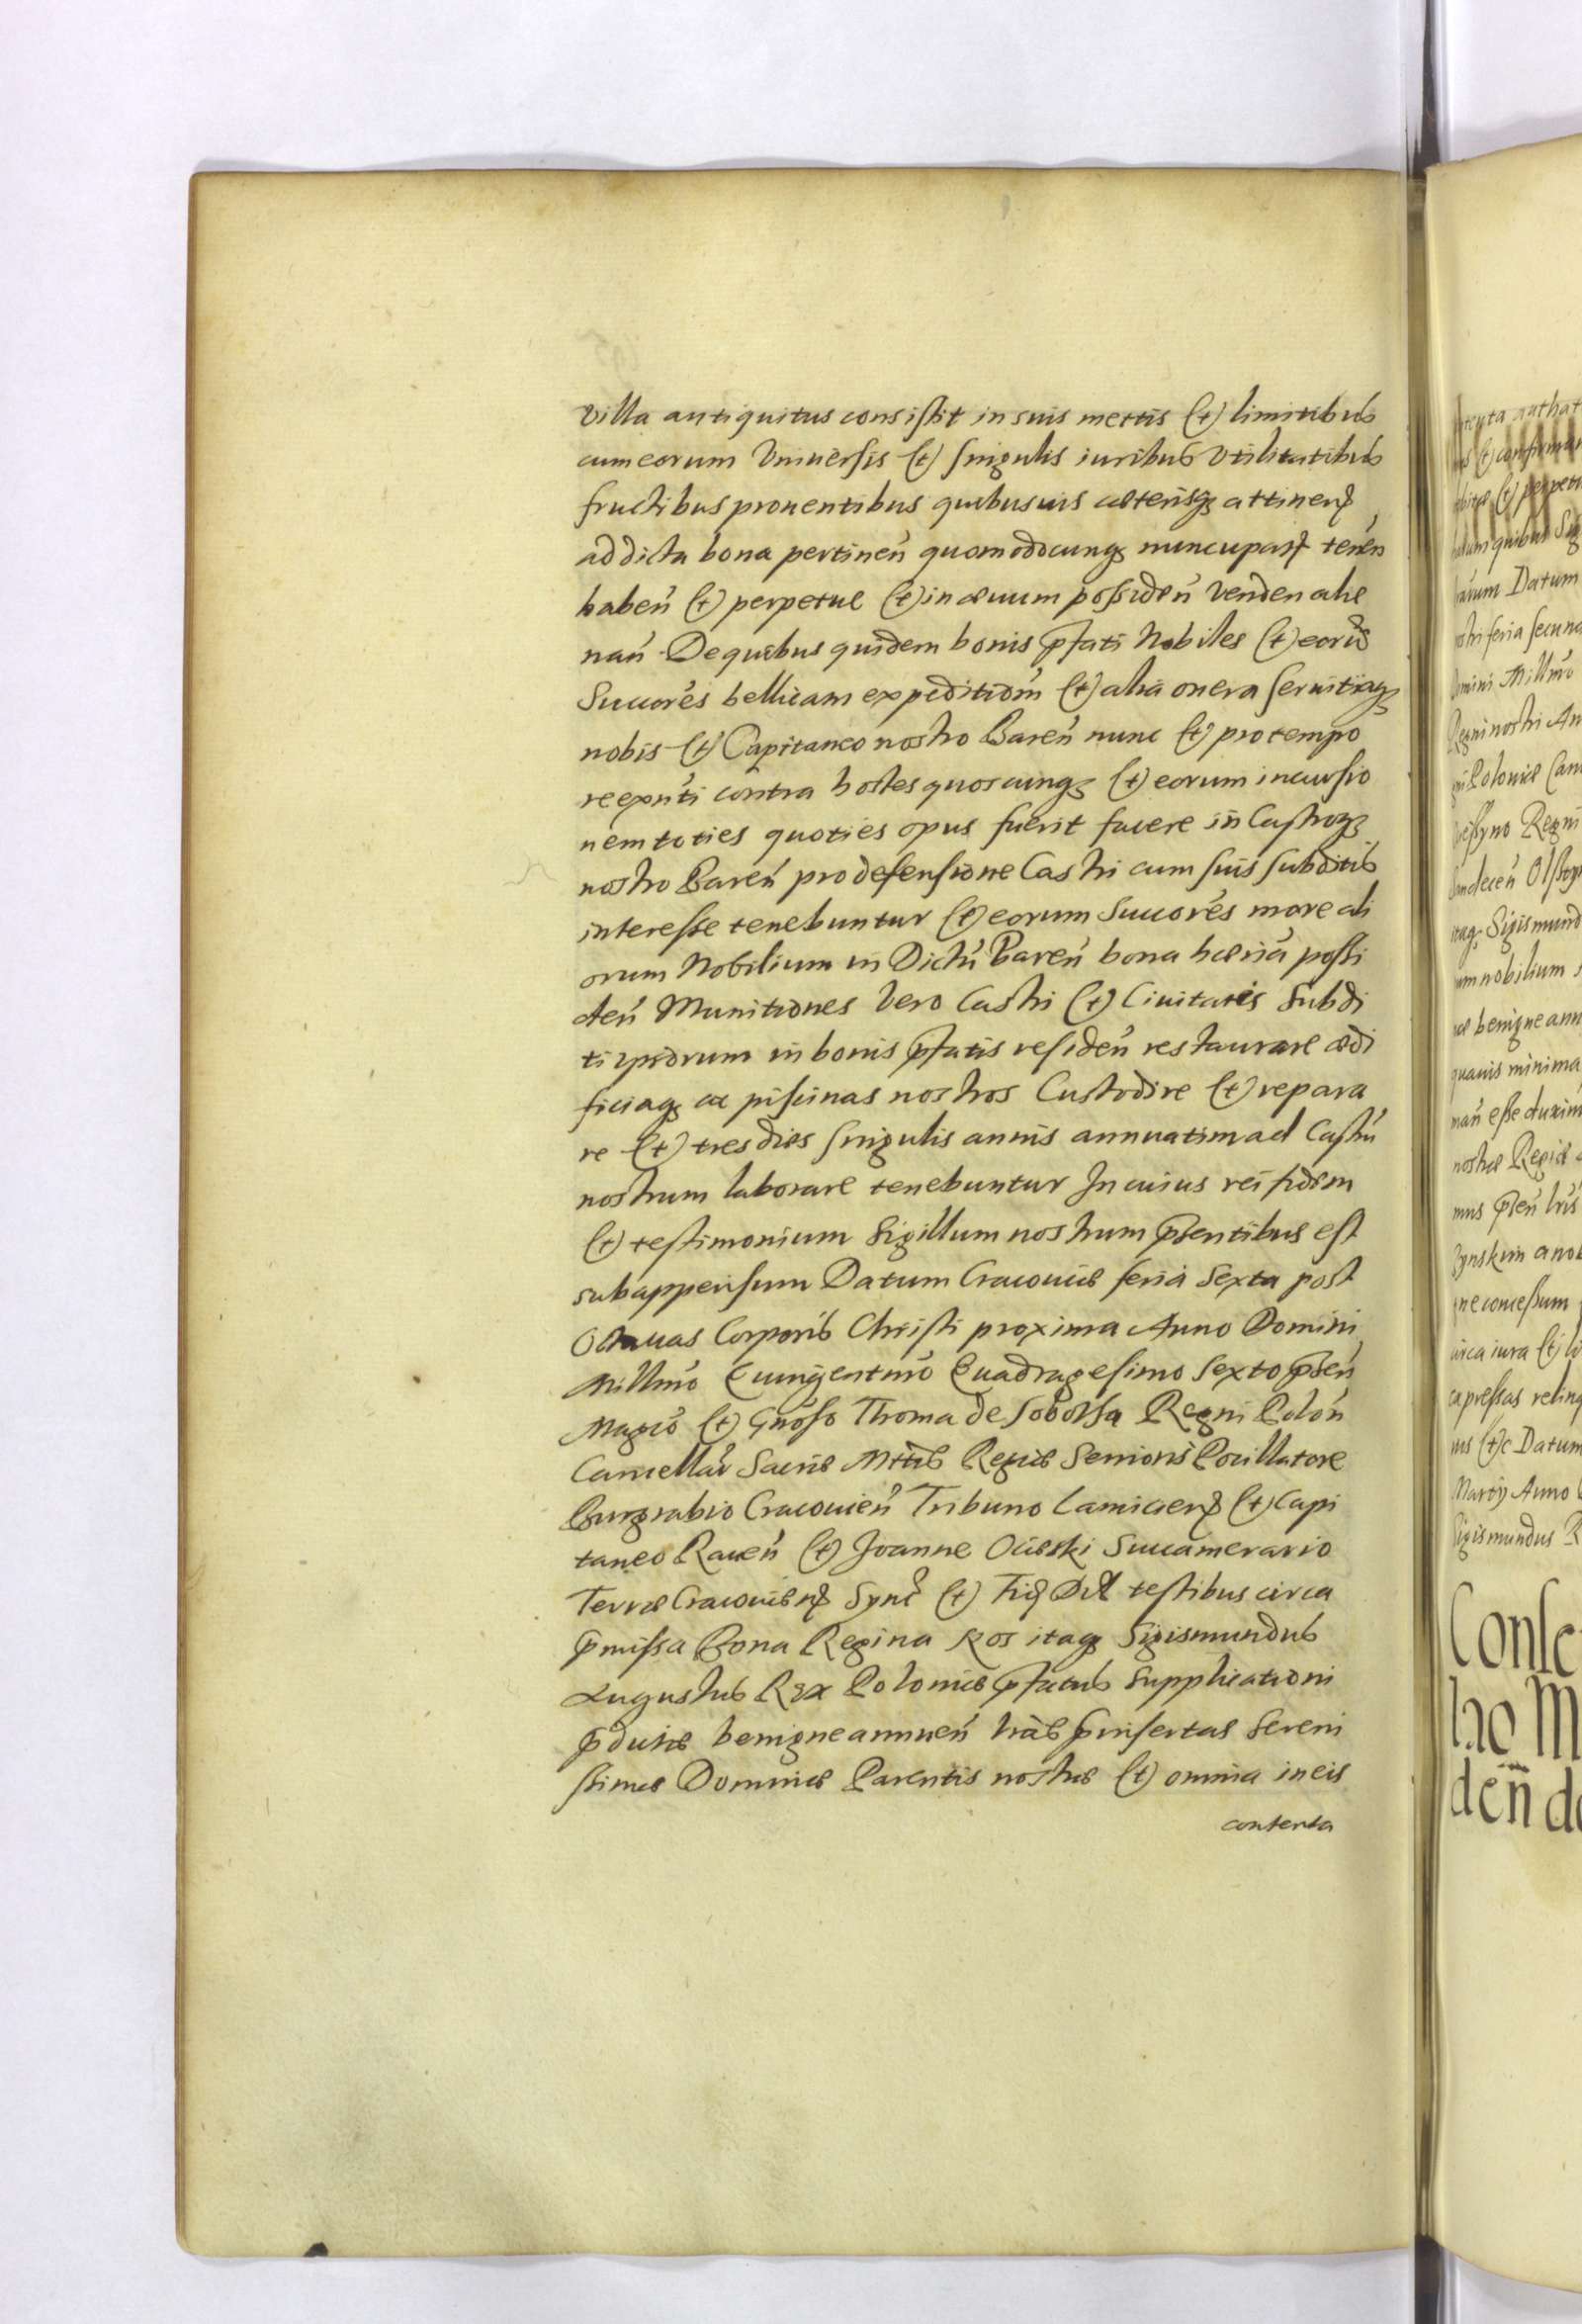 villa antiquitus consistit in suis mettis (et) limitibus
cum eorum Vniuersis (et) singulis iuribus vtilitatibus
fructibus prouentibus quibusuis cæterisq attinen
ad dicta bona pertineń quomodocunq nuncupat teneń
habeń (et) perpetue (et) in æuum possideń Venden alie
nań De quibus quidem bonis pfati Nobiles (et) eorū
Succores bellicam expeditiom (et) alia onera seruitiaq
nobis (et) Capitaneo nostro Bareń nunc (et) pro tempo
re exnti contra hostes quoscunq (et) eorum incursio
nem toties quoties opus fuerit facere in Castroq
nostro Bareń pro defensione Castri cum suis subditis
interesse tenebuntur (et) eorum Succores more ali
orum Nobilium in Dictu Bareń bona hæria possi
deń Munitiones Vero Castri (et) Ciuitatis Subdi
ti ipsorum in bonis pfatis resideń restaurare ædi
ficiaq ac piscinas nostros Custodire (et) repara
re (et) tres dies singulis annis annuatim ad Castrū
nostrum laborare tenebuntur In cuius rei fidem
(et) testimonium Sigillum nostrum psentibus est
subappensum Datum Cracouiæ feria Sexta post
Octauas Corporis Christi proxima Anno Domini
Millmo Quingentmo Quadragesimo Sexto pseń
Magco (et) Gnoso Thoma de Sobotka Regni Poloń
Cancellar Sacræ Mttis Regiæ Senioris Pocillatore
Burgrabio Cracouień Tribuno Lanicień (et) Capi
taneo Raueń (et) Joanne Ocieski Succamerario
Terræ Cracouień Sync (et) Fid Dil testibus circa
pmissa Bona Regina Nos itaq Sigismundus
Augustus Rex Poloniæ pfatus Supplicationi
pductæ benigne annueń lras pinsertas Sereni
ssimæ Dominæ Parentis nostræ (et) omnia in eis
contenta
Regni nostri An
Datum
ostri feria secund
Domini Millmo
Regni
Sigismund
nobilium
benigne ann
quauis minima
nostræ Regiæ
ne concessum
circa iura (et)
Datum
Martij Anno
Sigismundus R
Conse
deń de